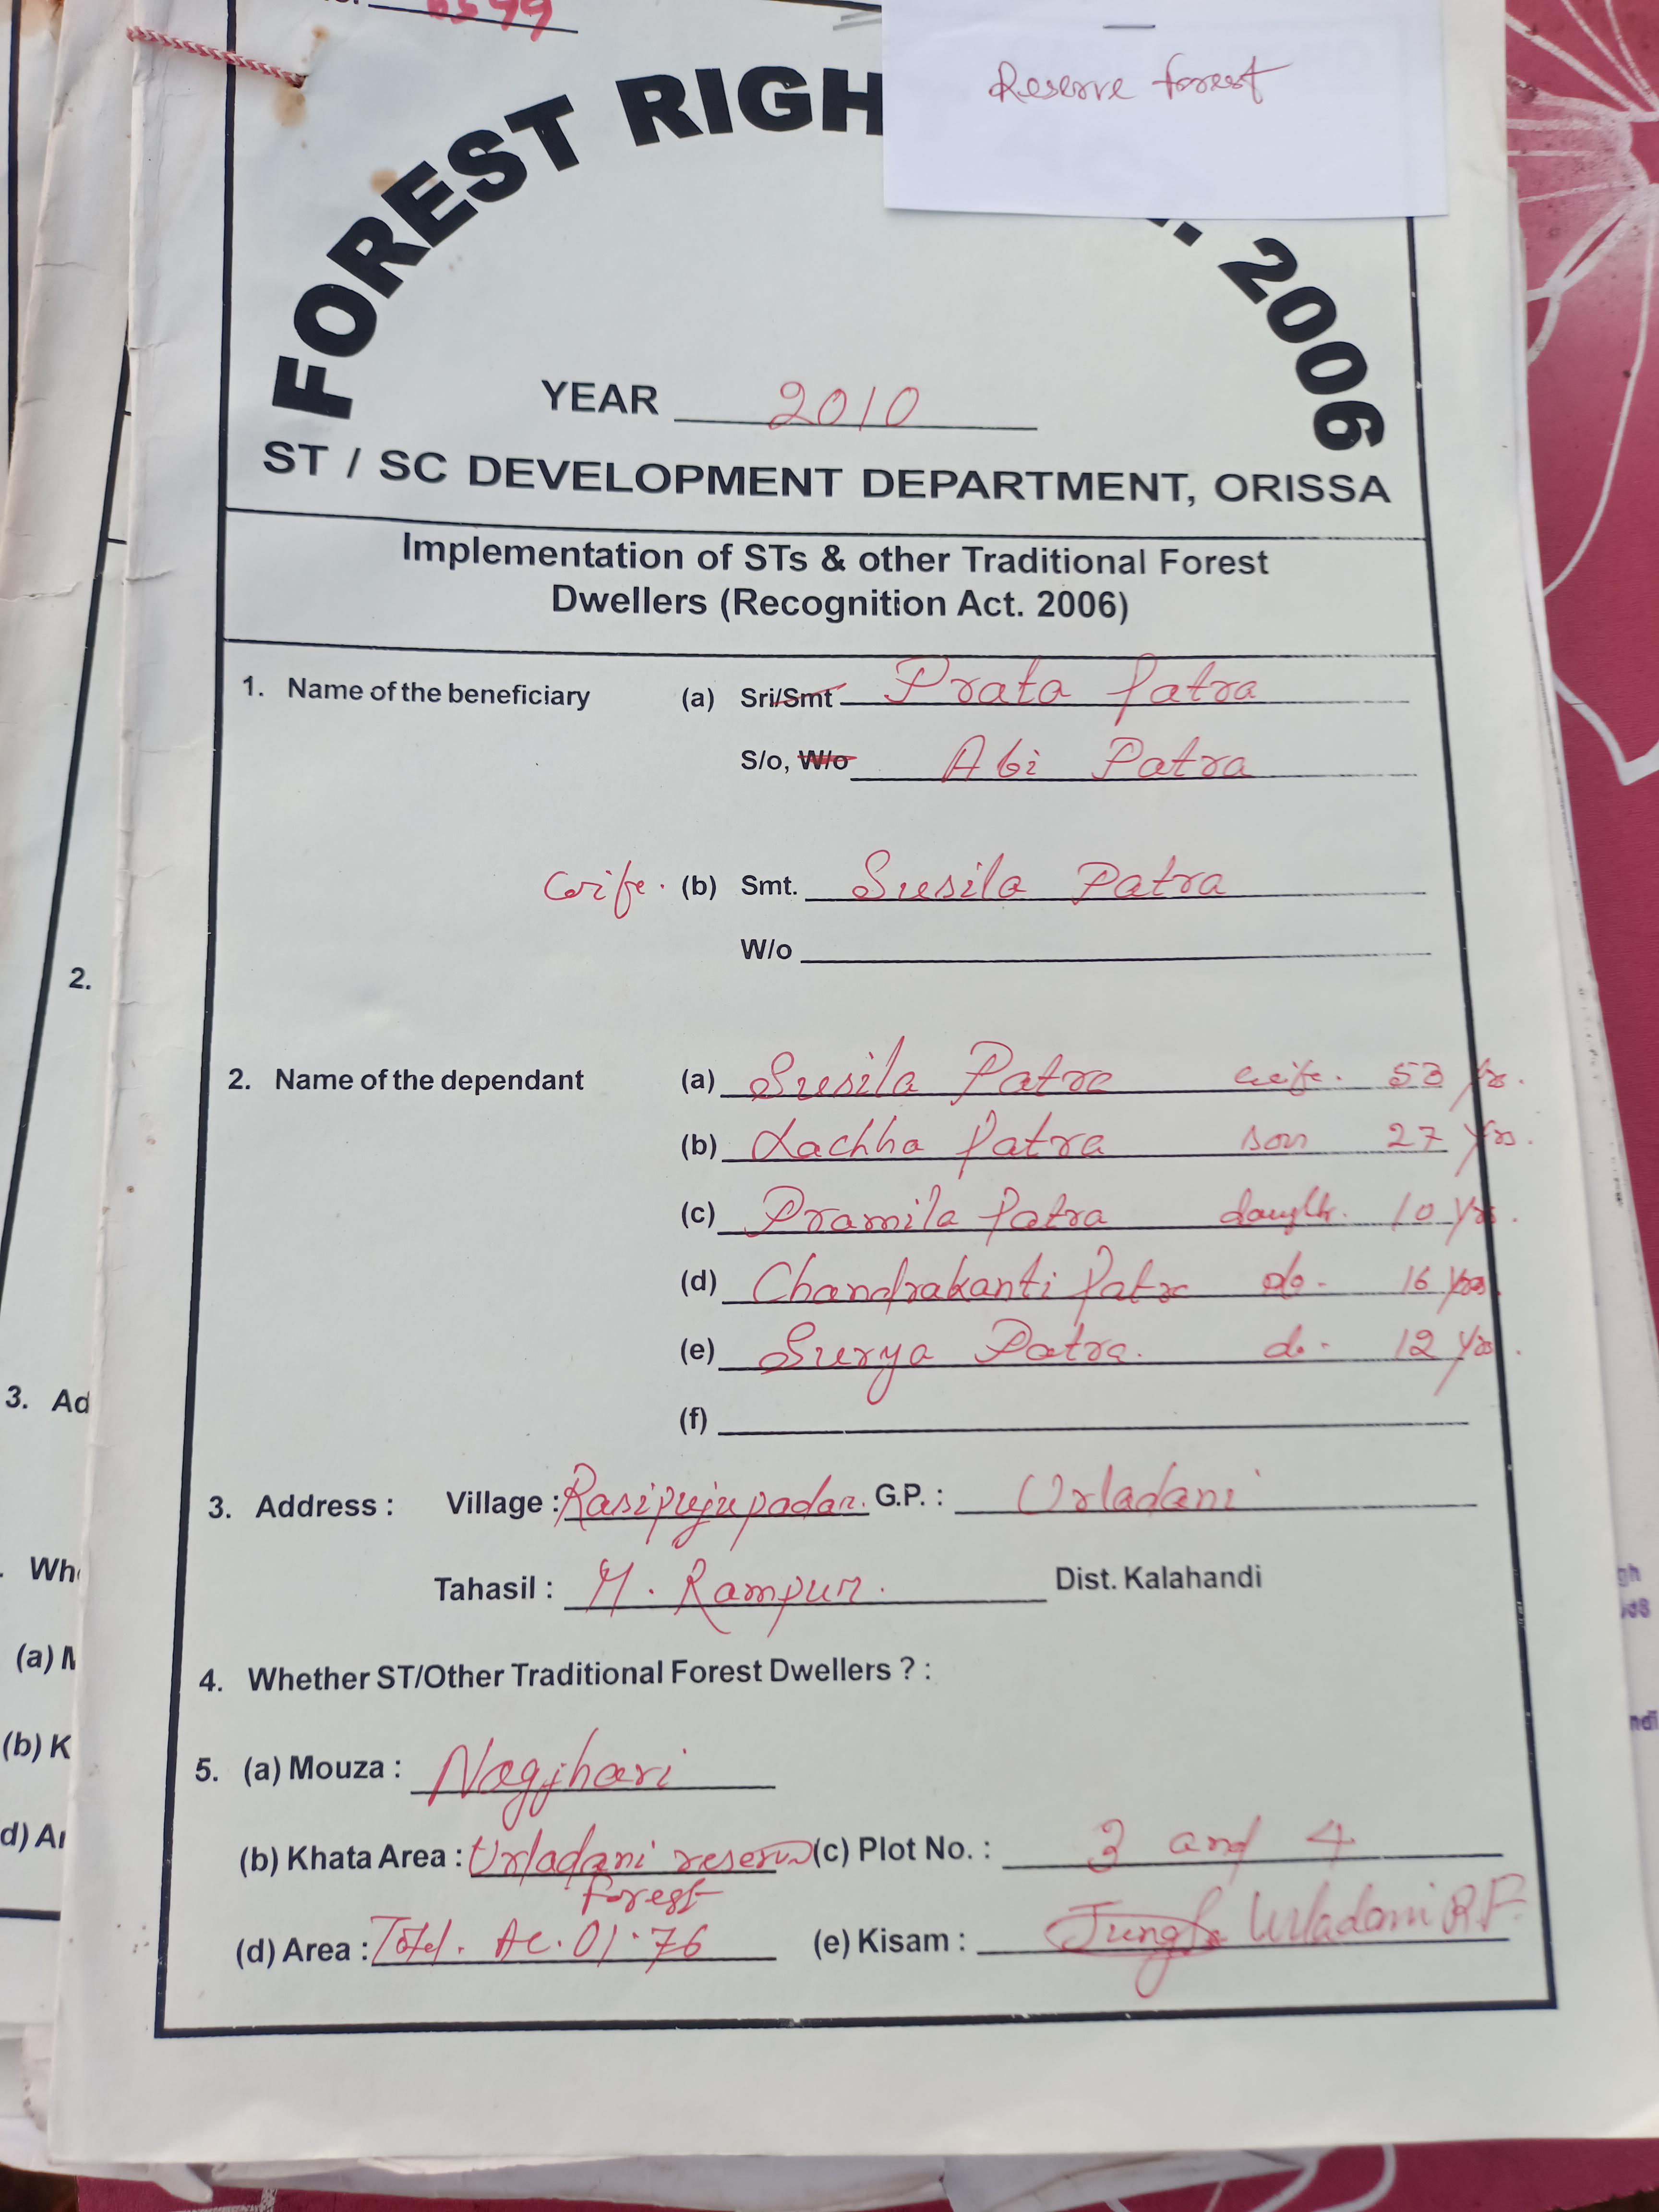 FOREST RIGH
. 2006
Reserve forest
YEAR 2010
ST / SC DEVELOPMENT DEPARTMENT, ORISSA
Implementation of STs & other Traditional Forest
Dwellers (Recognition Act. 2006)
1. Name of the beneficiary (a) Sri/Smt Prata Patra
S/o, W/o Abi Patra
wife. (b) Smt. Susila Patra
W/o
2. Name of the dependant (a) Susila Patra wife. 53 yrs.
(b) Lachha Patra son 27 yrs.
(c) Pramila Patra daughtr. 10 yrs.
(d) Chandrakanti Patra do- 16 yrs
(e) Surya Patra. do- 12 yrs.
(f)
3. Address : Village : Rasipujupadar. G.P. : Urladani
Tahasil : M. Rampur. Dist. Kalahandi
4. Whether ST/Other Traditional Forest Dwellers ? :
5. (a) Mouza : Nagjhari
(b) Khata Area : Urladani reserve (c) Plot No. : 3 and 4
forest
(d) Area : Total. Ac. 01.76 (e) Kisam : Jungle Urladani R.F.
2.
3. Ad
(a)
(b) K